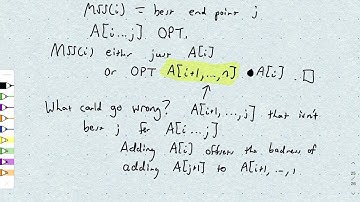 MSS(i) = best end point j
A[i...j] OPT.
MSS(i) either just A[i]
or OPT A[i+1,...,n] • A[i]. □
What could go wrong? A[i+1,...,j] that isn't
best j for A[i...j]
Adding A[i] offsets the badness of
adding A[j+1] to A[i+1,...,